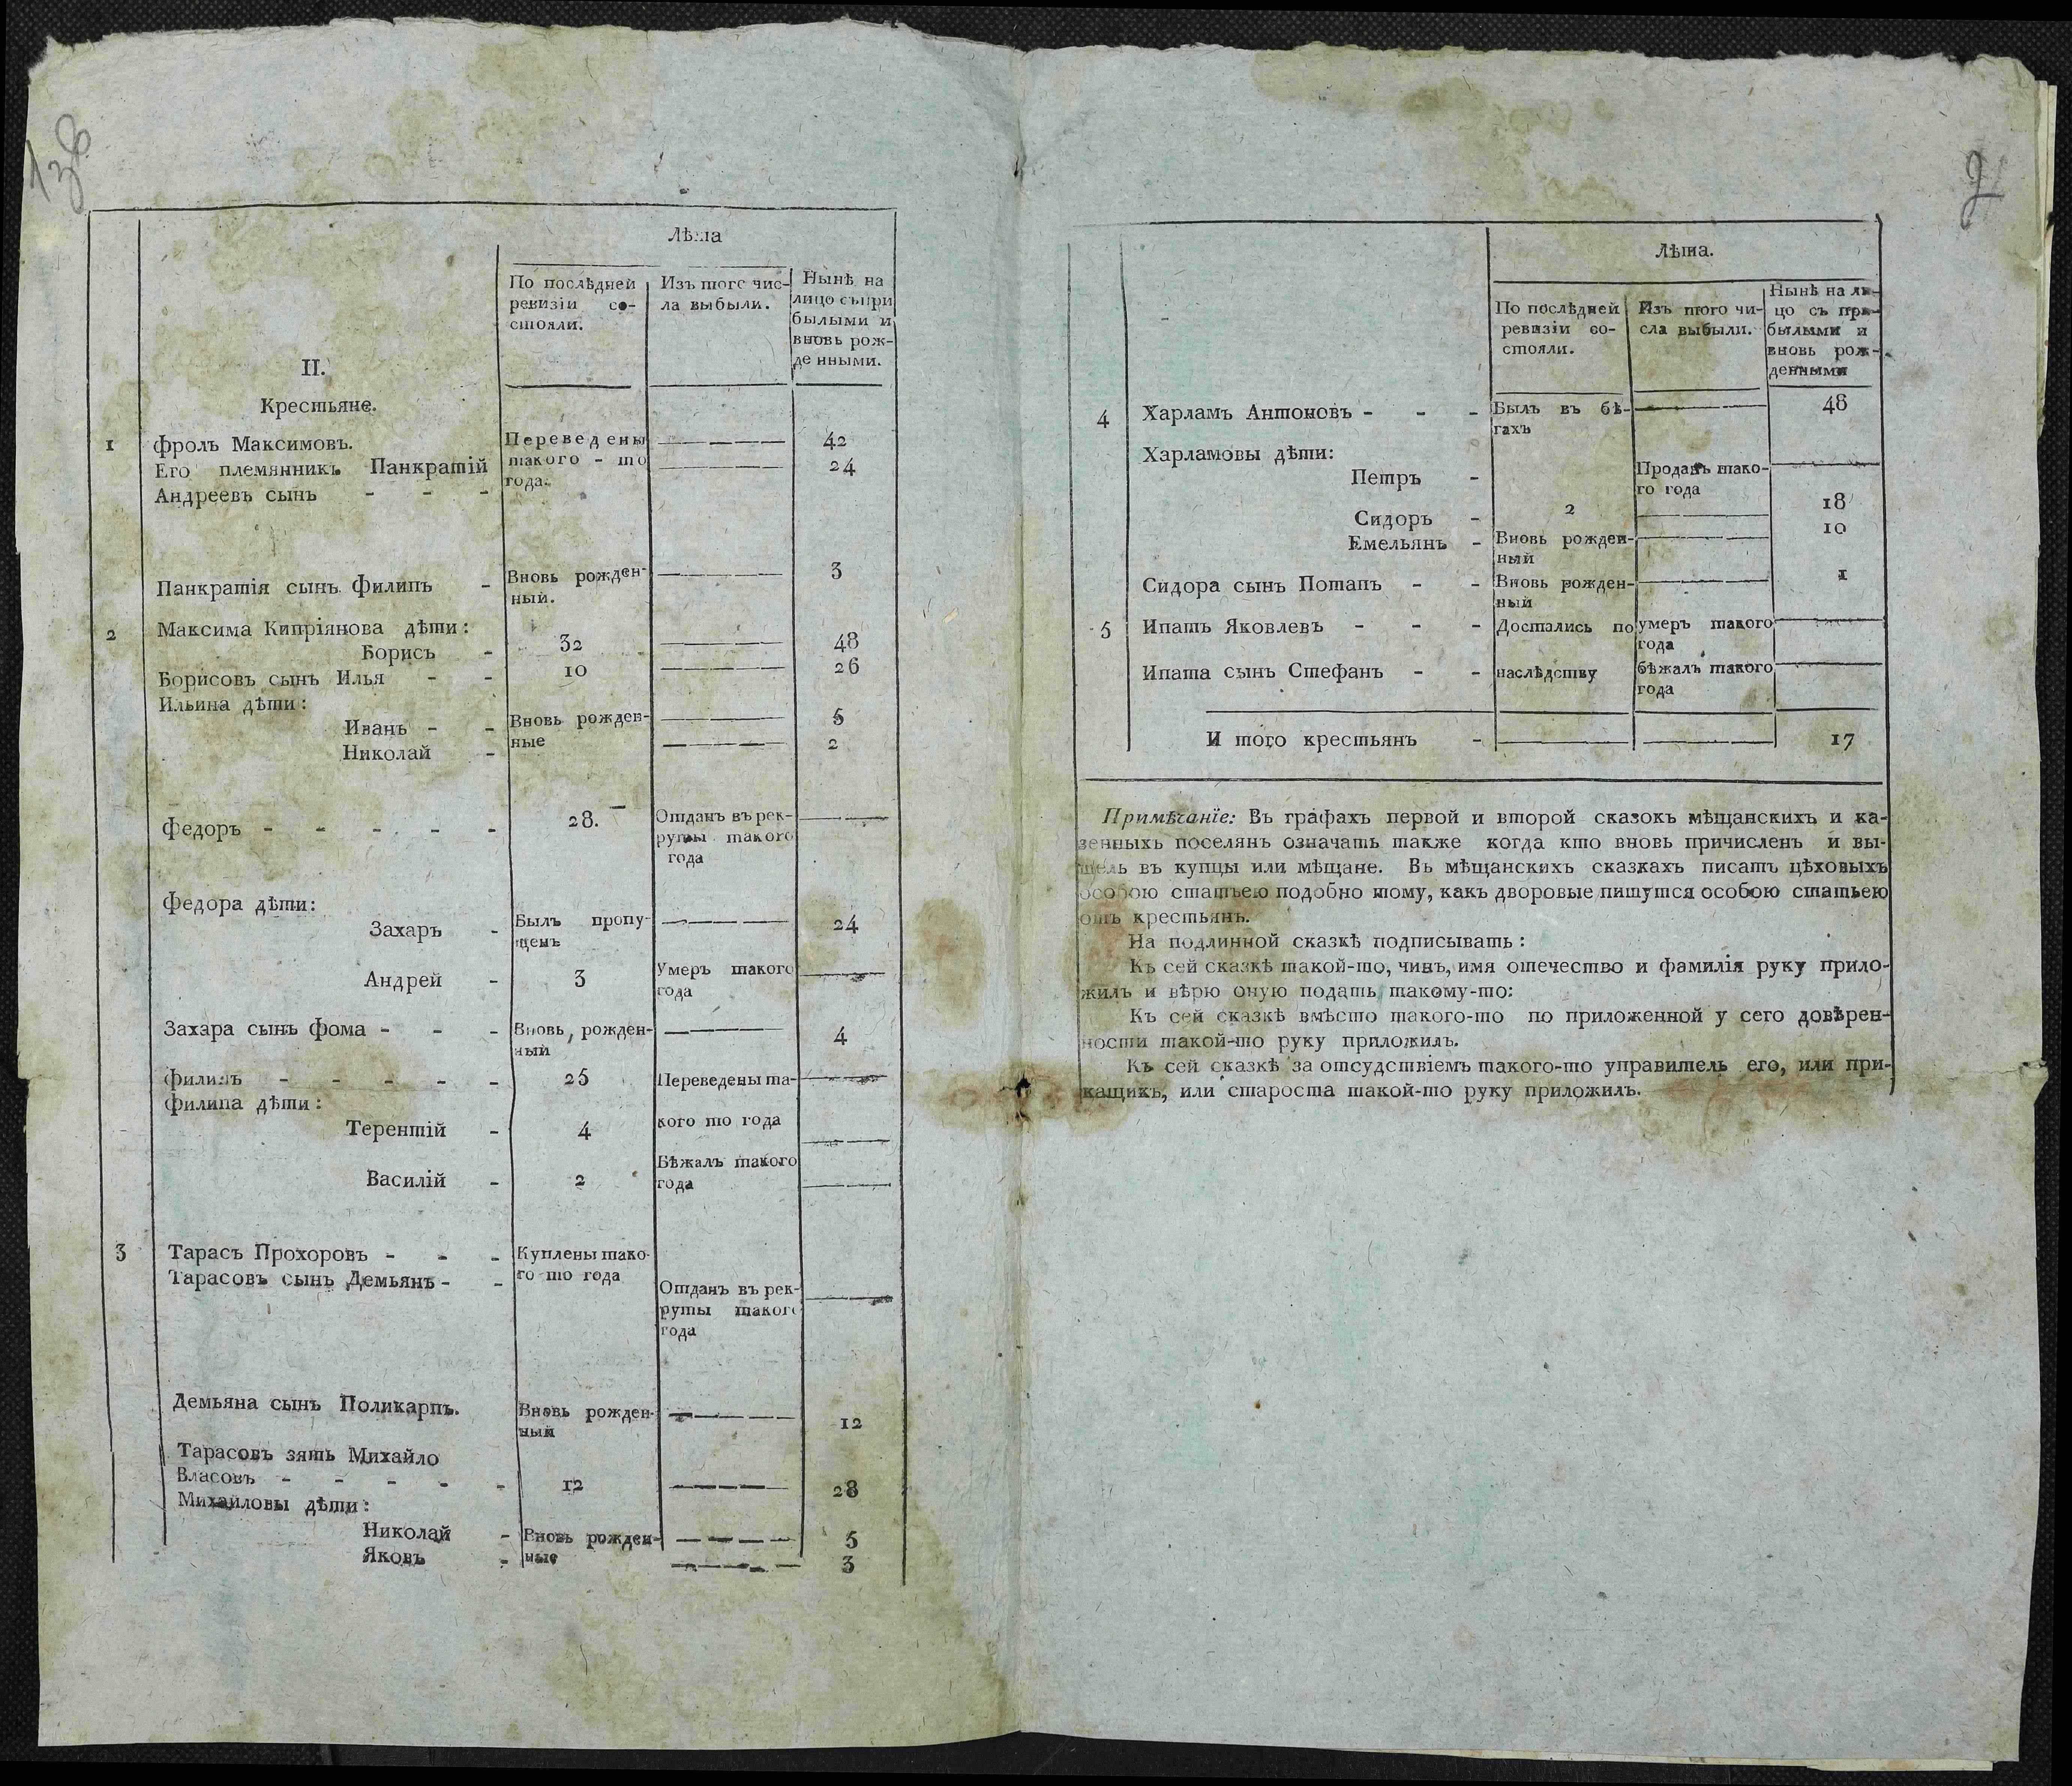 138
Лѣта
По послѣдней ревизіи со- стояли.
Изъ того чис- ла выбыли.
Нынѣ на лицо съ при былыми и вновь рож- денными.
II.
Крестьяне.
1 Фролъ Максимовъ. Переведены 42
Его племянникъ Панкратій такого - то 24
Андреевъ сынъ - - - года.
Панкратія сынъ Филипъ - Вновь рожден- 3
ный.
2 Максима Кипріянова дѣти:
Борисъ - 32 48
Борисовъ сынъ Илья - - 10 26
Ильина дѣти:
Иванъ - - Вновь рожден- 5
Николай - ные 2
Федоръ - - - - - 28. Отданъ въ рек-
руты такого
года
Федора дѣти:
Захаръ - Былъ пропу- 24
щенъ
Андрей - 3 Умеръ такого
года
Захара сынъ Фома - - - Вновь рожден- 4
ный
Филипъ - - - - - 25 Переведены та-
Филипа дѣти:
Терентій - 4 кого то года
Василій - 2 Бѣжалъ такого
года
3 Тарасъ Прохоровъ - - - Куплены тако-
Тарасовъ сынъ Демьянъ - - го то года
Отданъ въ рек-
руты такого
года
Демьяна сынъ Поликарпъ. Вновь рожден- 12
ный
Тарасовъ зять Михайло
Власовъ - - - - - 12 28
Михайловы дѣти:
Николай - Вновь рожден- 5
Яковъ - ные 3
Лѣта.
По послѣдней ревизіи со- стояли.
Изъ того чи- сла выбыли.
Нынѣ на ли- цо съ при- былыми и вновь рож- денными
4 Харламъ Антоновъ - - - Былъ въ бѣ- 48
гахъ
Харламовы дѣти:
Петръ - Проданъ тако-
го года
Сидоръ - 2 18
Емельянъ - Вновь рожден- 10
ный
Сидора сынъ Потапъ - - Вновь рожден- 1
ный
5 Ипатъ Яковлевъ - - - Достались по умеръ такого
года
Ипата сынъ Стефанъ - - наслѣдству бѣжалъ такого
года
И того крестьянъ - 17
Примѣчанїе: Въ графахъ первой и второй сказокъ мѣщанскихъ и ка-
зенныхъ поселянъ означать также когда кто вновь причисленъ и вы-
шелъ въ купцы или мѣщане. Въ мѣщанскихъ сказкахъ писать цѣховыхъ
особою статьею подобно тому, какъ дворовые пишутся особою статьею
отъ крестьянъ.
На подлинной сказкѣ подписывать:
Къ сей сказкѣ такой-то, чинъ, имя отечество и фамилія руку прило-
жилъ и вѣрю оную подать такому-то:
Къ сей сказкѣ вмѣсто такого-то по приложенной у сего довѣрен-
ности такой-то руку приложилъ.
Къ сей сказкѣ за отсудствіемъ такого-то управитель его, или при-
кащикъ, или староста такой-то руку приложилъ.